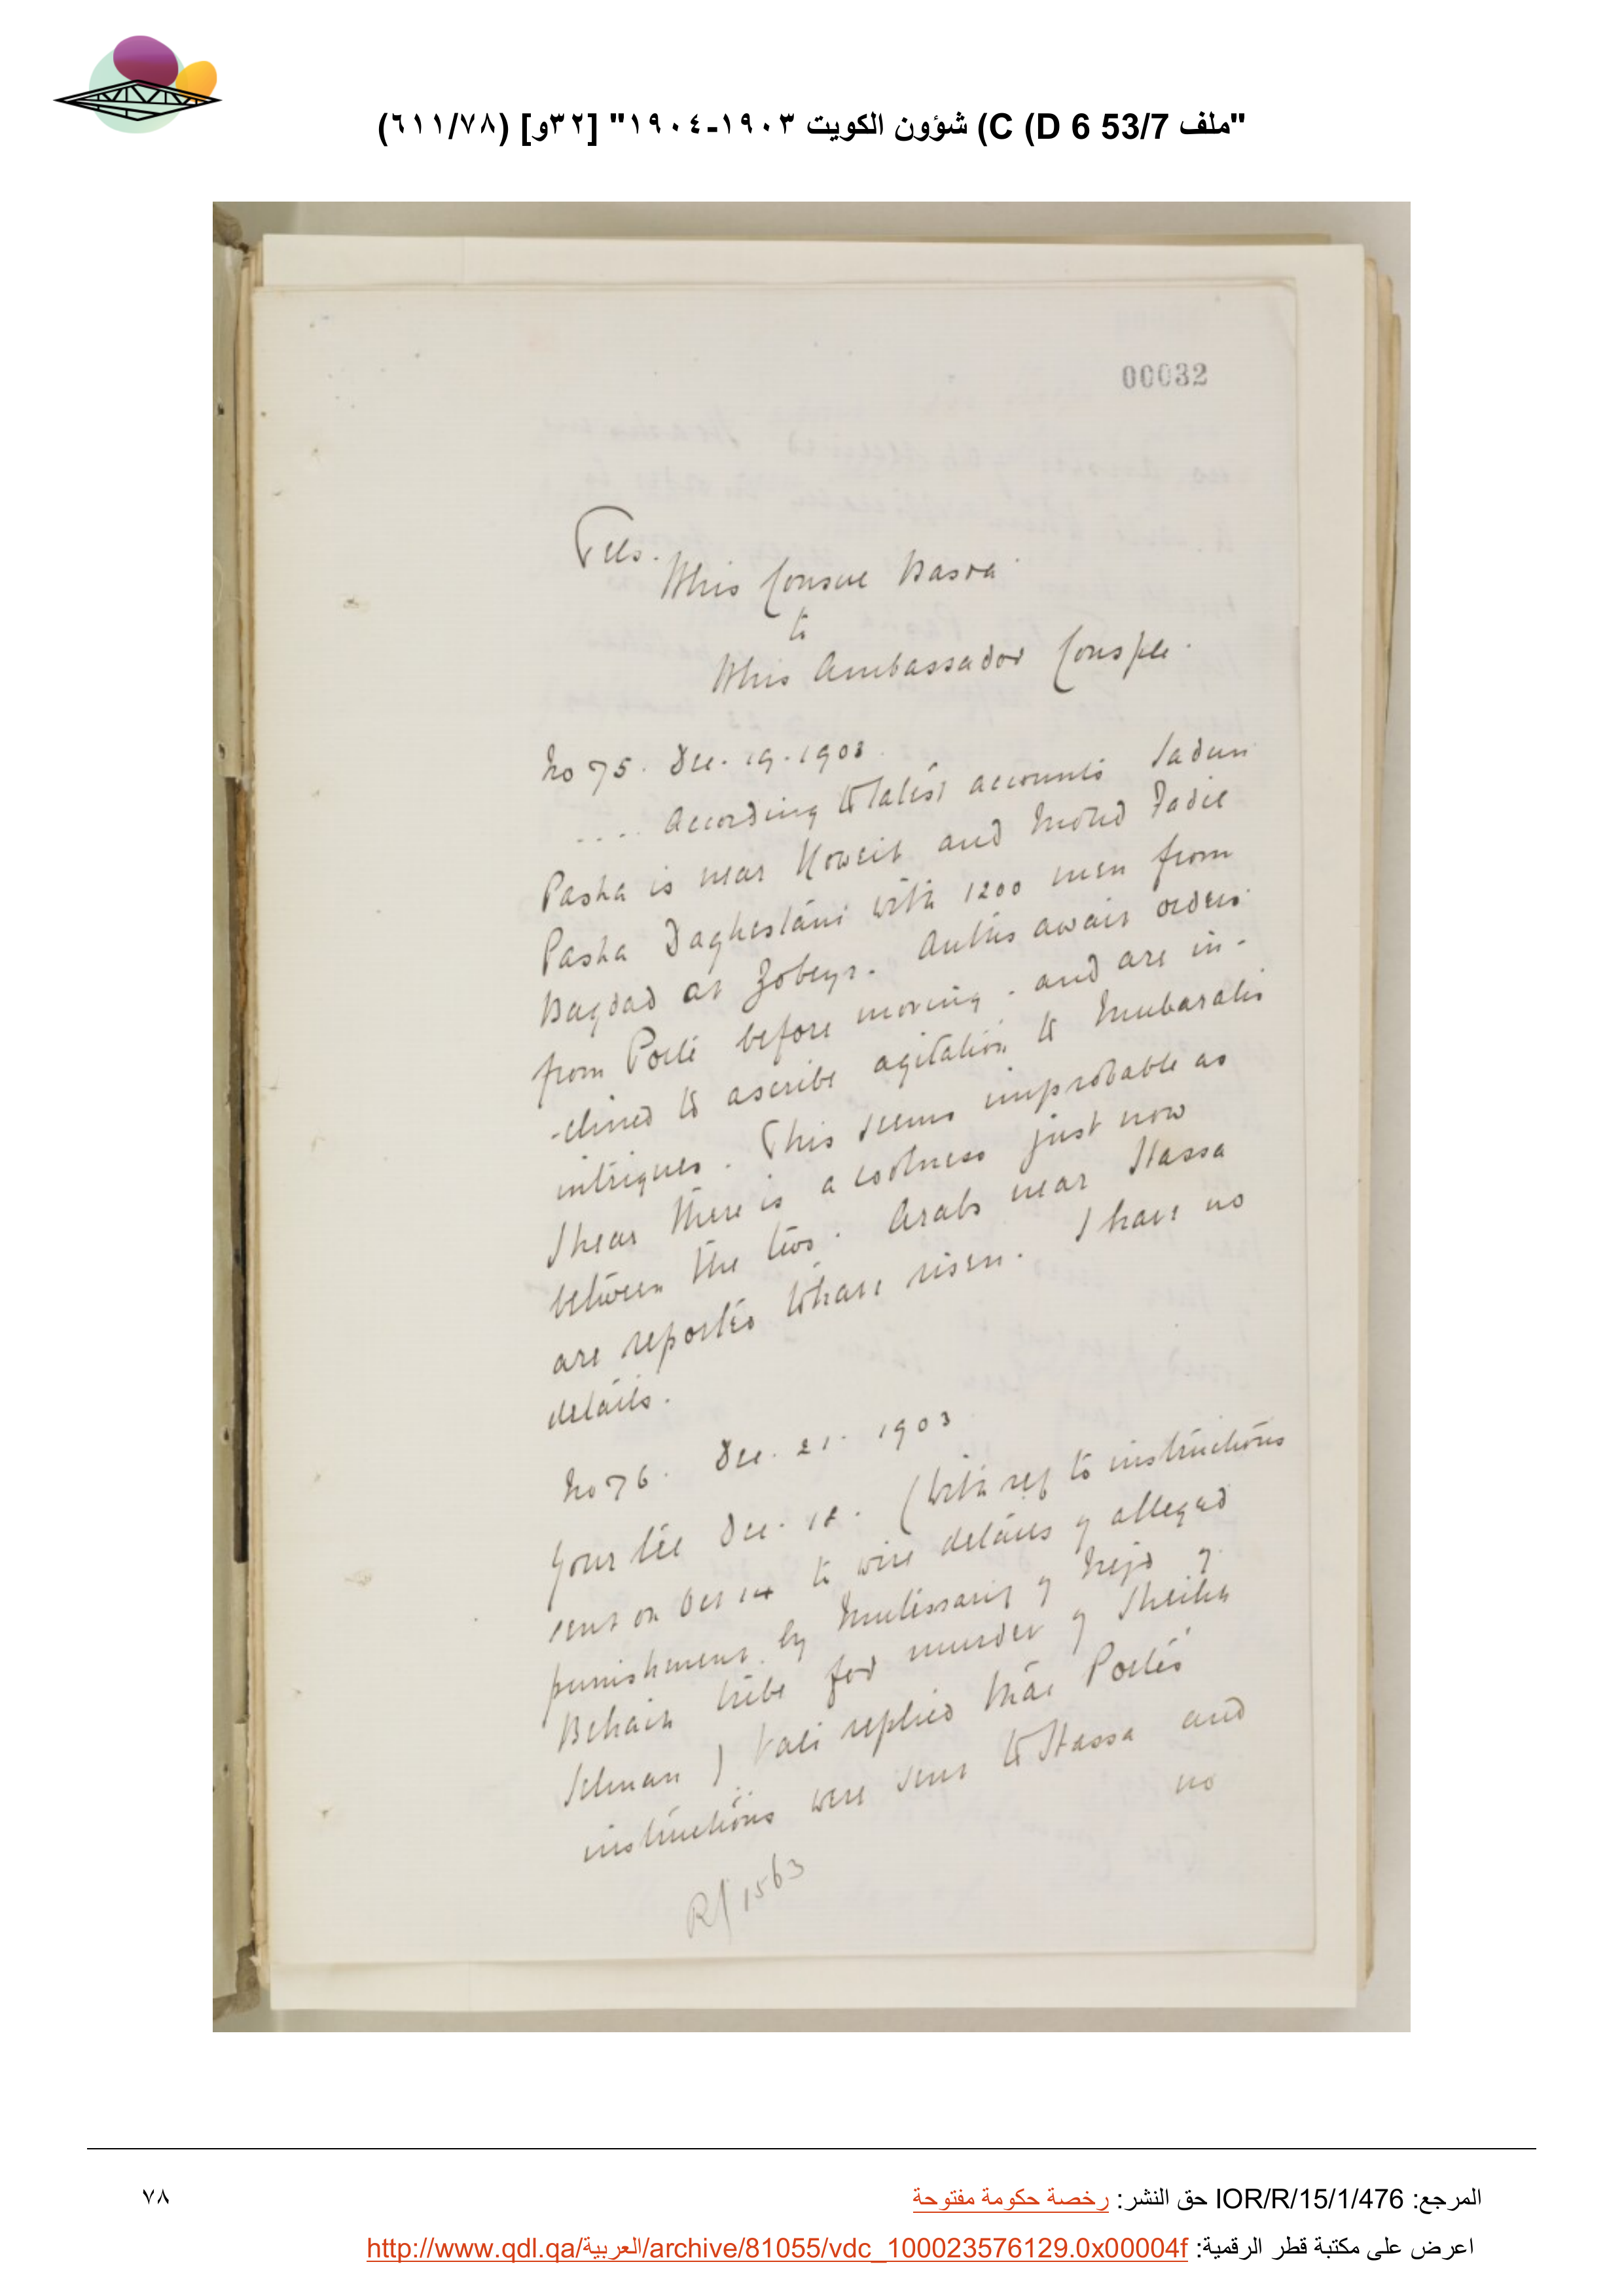 "ملف 53/7 C (D 6) شؤون الكويت ١٩٠٣-١٩٠٤" [٣٢و] (٦١١/٧٨)
00032
Tels.
HMs Consul Basra
to
HMs Ambassador Consple.
No 75. Dec. 19. 1903.
.... According to latest accounts Sadun
Pasha is near Koweit and Mohd Fadil
Pasha Daghestani with 1200 men from
Bagdad at Zobeyr. Auths await orders
from Porte before moving. and are in-
-clined to ascribe agitation to Mubaraks
intrigues. This seems improbable as
I hear there is a coolness just now
between the two. Arabs near Hassa
are reported to have risen. I have no
details.
No 76. Dec. 21. 1903
Your tel Dec. 18. (With ref to instructions
sent on Oct 14 to wire details of alleged
punishment by Mutessarif of Nejd of
Behaih tribe for murder of Sheikh
Selman) Vali replied that Porte's
instructions were sent to Hassa and
no
R/1563
المرجع: IOR/R/15/1/476 حق النشر: رخصة حكومة مفتوحة
٧٨
اعرض على مكتبة قطر الرقمية: http://www.qdl.qa/العربية/archive/81055/vdc_100023576129.0x00004f